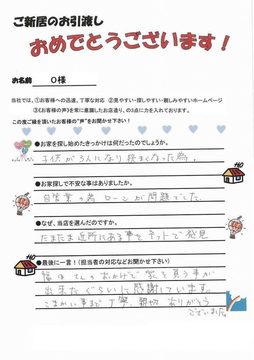 ご新居のお引渡し
おめでとうございます！
お名前　O様
当社では、①お客様への迅速、丁寧な対応　②見やすい・探しやすい・親しみやすいホームページ
③《お客様の声》を常に意識したお店造り、の3点に力を入れております。
この度ご縁を頂いたお客様の"声"をお聞かせ下さい！
●お家を探し始めたきっかけは何だったのでしょうか。
子供が3人になり狭くなった為。
●お家探しで不安な事はありましたか。
自営業の為ローンが問題でした。
●なぜ、当店を選んだのですか。
たまたま近所にある事をネットで発見
●最後に一言！（担当者の対応などお聞かせ下さい）
さんのおかげで家を買う事が
出来たぐらいに感謝しています。
こまかい事まで丁寧、親切ありがとう
ございました。